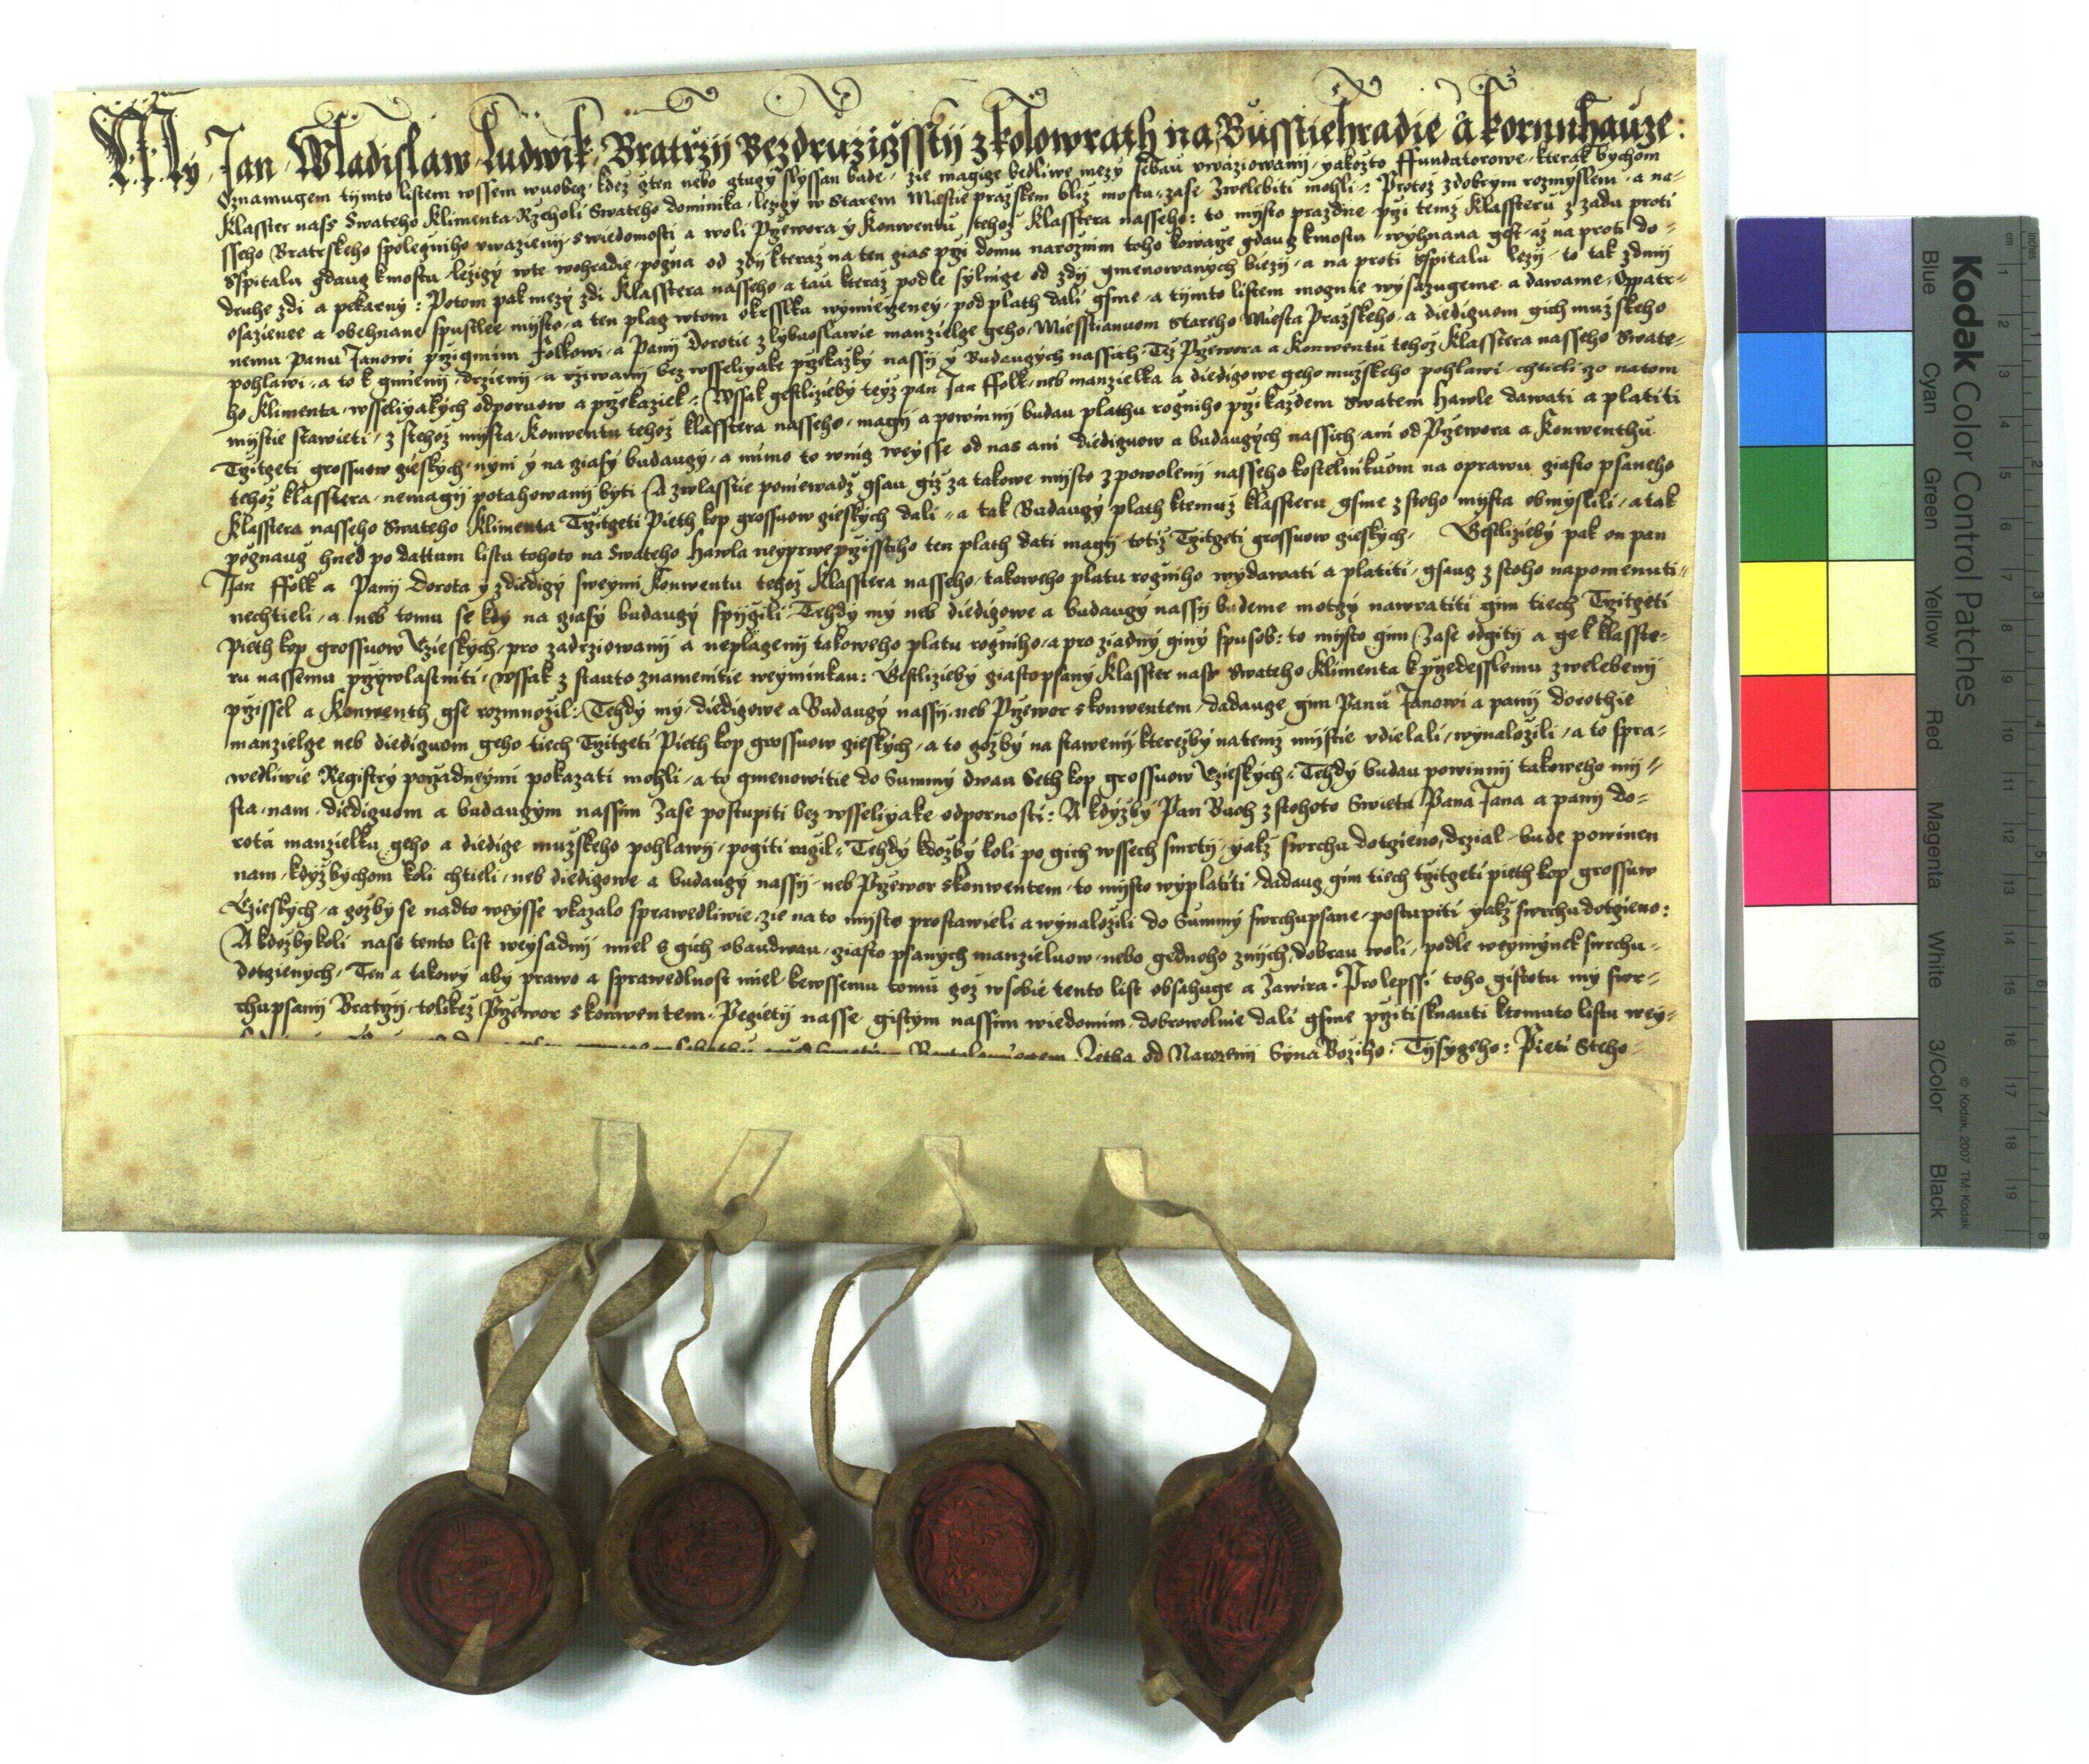 My Jan Wladislaw Ludwik Bratrzij Bezdruzigsstij z kolowrath na Busstiehradie a kornnhauze:
Oznamugem tijmto listem wssem wuobecz kdez czten nebo cztuczy slyssan bude zie magicze bedliwe mezy sebau uwaziowanij yakozto ffundatorowe kterak bychom
Klasster nass Swateho Klimenta Rzeholi Swateho dominika lezyczy w Starem Miestie prazskem bliz mostu zase zwelebiti mohli: Protoz z dobrym rozmyslem a na-
sseho Bratrskeho spolecznieho uwazienij s wiedomosti a woli Przewora y Konwentu tehoz Klasstera nasseho: to mijsto prazdne przi temz Klassteru z zadu proti
Sspitalu gdaucz k mostu leziczy w te wohradie poczna od zdi kteraz na ten czas przi domu naroznim toho kowarze gdaucz k mostu wyhnana gest az na proti do-
druhe zdi a pekarny: Potom pak mezy zdi Klasstera nasseho a tau kteraz podle sylnicze od zdij gmenowanych biezij a na proti Sspitalu lezij to tak zdmij
osazienee a obehnane spustlee mijsto a ten placz w tom okrsslku wymierzeney pod plath dali gsme a tijmto listem mocznie wysazugeme a dawame Oppatr-
nemu panu Janowi przigmim Folkowi a Panij Dorotie z lybuoslawie manzielcze geho Miesstianuom Stareho Miesta Prazskeho a diediczuom gich muzskeho
pohlawi a to k gmienij drzienij a uziwanij bez wsseliyake przekazky nassij y Budauczych nassich Tez Przewora a Konwentu tehoz Klasstera nasseho Swate-
ho Klimenta wsseliyakych odporuow a przekaziek: Wssak gestlizieby teyz pan Jan ffolk neb manzielka a diediczowe geho muzskeho pohlawi chtieli czo na tom
mijstie stawieti z stehoz mijsta Konwentu tehoz klasstera nasseho magij a powinnij budau plathu roczniho przi kazdem Swatem Hawle dawati a platiti
Trzitczeti grossuow czieskych nyni y na cziasy budauczy a mimo to wnicz weysse od nas ani diediczuow a budauczych nassich ani od Przewora a Konwenthu
tehoz klasstera nemagij potahowanij byti A zwlasstie poniewadz gsau giz za takowe mijsto z powolenij nasseho kostelnikuom na oprawu cziasto psaneho
Klasstera nasseho Swateho Klimenta Trzitczeti Pieth kop grossuow czieskych dali a tak Budauczy plath k temuz klassteru gsme z stoho mijsta obmyslili a tak
pocznaucz hned po dattum listu tohoto na Swateho Hawla neyprwe przisstiho ten plath dati magij totiz Trzitczeti grossuow czieskych Gestlizieby pak on pan
Jan ffolk a Panij Dorota y z diediczy sweymi Konwentu tehoz Klasstera nasseho takoweho platu roczniho wydawati a platiti gsaucz z stoho napomenuti
nechtieli a neb tomu se kdy na cziasy budauczy sprzieczili Tehdy my neb diediczowe a budauczy nassij budeme motczy nawratiti gim tiech Trzitczeti
Pieth kop grossuow Czieskych pro zadrziowanij a neplaczenij takoweho platu roczniho a pro ziadny giny spusob: to mijsto gim zase odgitij a ge k klasste-
ru nassemu przywlastniti wssak z stauto znamenitie weyminkau: Gestlizieby cziastopsany Klasster nass Swateho Klimenta k przedesslemu zwelebenij
przissel a Konwenth gse rozmnozil: Tehdy my diediczowe a Budauczy nassij neb Przewor s konwentem dadaucze gim Panu Janowi a panij dorothie
manzielcze neb diediczuom geho tiech Trzitczeti Pieth kop grossuow czieskych a to gozby na stawenij kterezby na temz mijstie udielali wynalozili a to spra-
wedliwie Registry porzadneymi pokazati mohli a to gmenowitie do Summy dwau Seth kop grossuow Czieskych: Tehdy budau powinnij takoweho mij-
sta nam diediczuom a budauczym nassim zase postupiti bez wsseliyake odpornosti: A kdyzby Pan Buoh z stohoto Swieta Pana Jana a panij Do-
rotu manzielku geho a diedicze muzskeho pohlawij pogiti raczil: Tehdy kdozby koli po gich wssech smrtij yakz swrchu dotczieno drzial bude powinen
nam kdyzbychom koli chtieli neb diediczowe a budauczy nassij neb Przewor s konwentem to mijsto wyplatiti dadaucz gim tiech trzitczeti pieth kop grossuw
Czieskych a gozby se nadto weysse ukazalo sprawedliwie zie na to mijsto prostawieli a wynalozili do Summy swrchupsane postupiti yakz swrchu dotczieno:
A kdozbykoli nass tento list weysadnij miel s gich obaudwau cziasto psanych manzieluow nebo gednoho z nich dobrau woli podle weyminek swrchu-
dotczienych Ten a takowy aby prawo a sprawedlnost miel kewssemu tomu goz w sobie tento list obsahuge a zawira: Pro lepssi toho gistotu my swr-
chupsanij Bratrzij tolikez Przewor s konwentem Peczietij nasse gistym nassim wiedomim dobrowolnie dali gsme przitisknauti k tomuto listu wey-
Letha od Narozenij Syna Boziho: Tysyczeho: Pieti Steho-
Kodak Color Control Patches
Blue Cyan Green Yellow Red Magenta White 3/Color Black
© Kodak, 2007 TM: Kodak
cm 1 2 3 4 5 6 7 8 9 10 11 12 13 14 15 16 17 18 19
inches 1 2 3 4 5 6 7 8